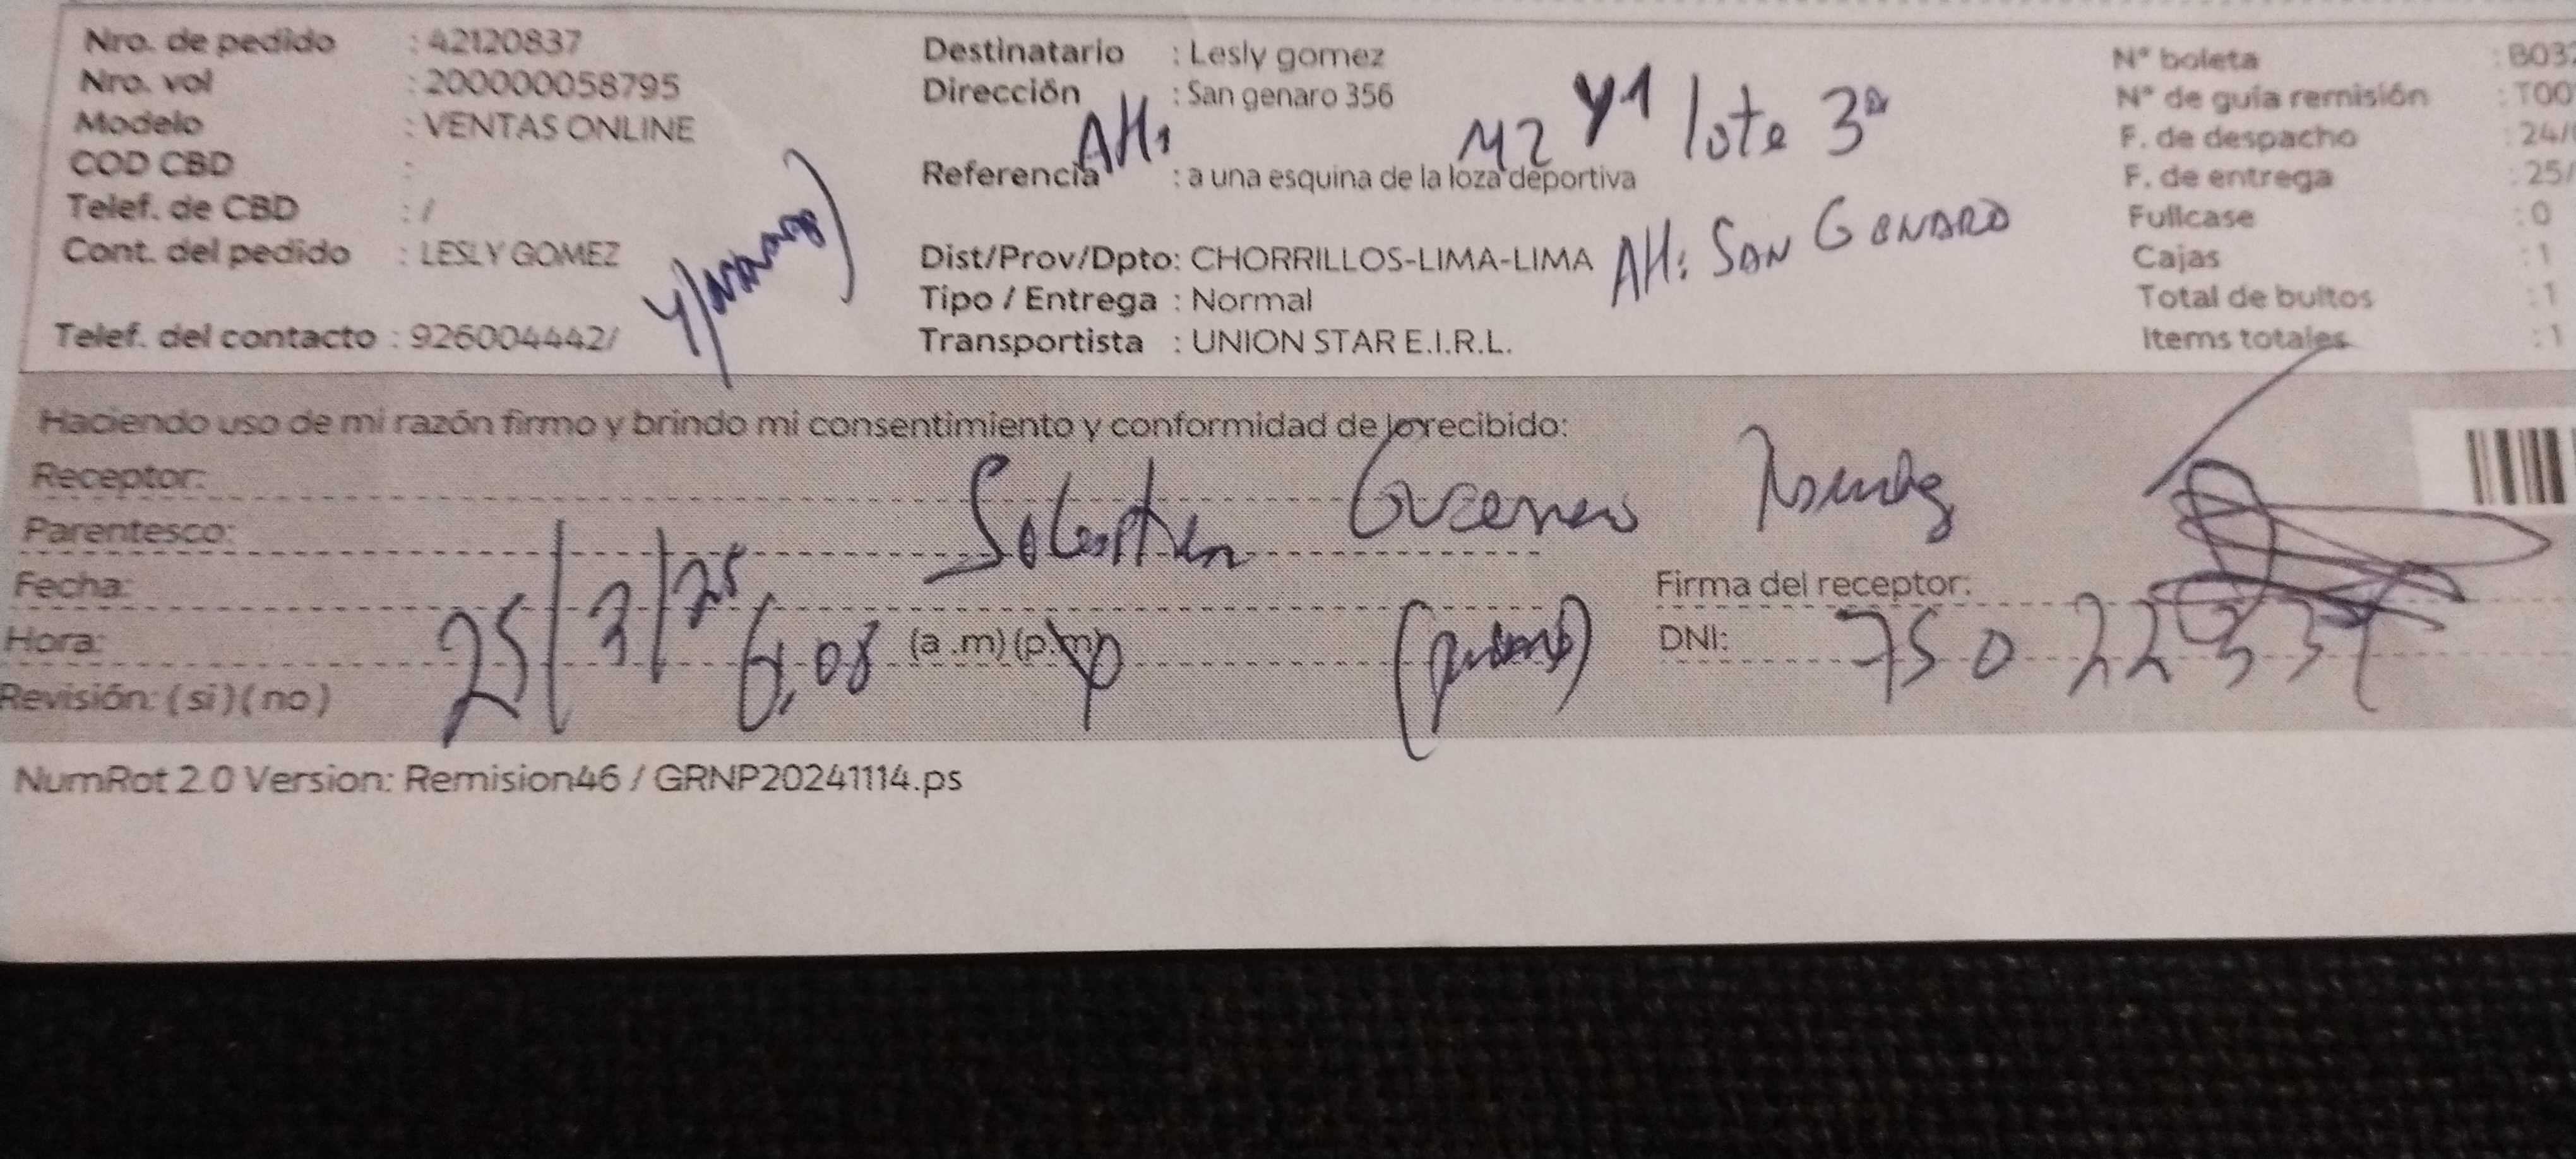 Nro. de pedido : 42120837
Nro. vol : 200000058795
Modelo : VENTAS ONLINE
COD CBD :
Telef. de CBD : /
Cont. del pedido : LESLY GOMEZ
Telef. del contacto : 926004442/
Destinatario : Lesly gomez
Dirección : San genaro 356
AH: MZ Y1 lote 3
Referencia : a una esquina de la loza deportiva
Dist/Prov/Dpto: CHORRILLOS-LIMA-LIMA AH: SAN GENARO
Tipo / Entrega : Normal
Transportista : UNION STAR E.I.R.L.
N° boleta : B03
N° de guía remisión : T00
F. de despacho : 24/
F. de entrega : 25/
Fullcase : 0
Cajas : 1
Total de bultos : 1
Items totales : 1
Haciendo uso de mi razón firmo y brindo mi consentimiento y conformidad de lo recibido:
Receptor:
Parentesco:
Fecha: 25/3/25
Hora: 6:08 (a .m) (p.m)
Revisión: ( si ) ( no )
Firma del receptor:
DNI:
NumRot 2.0 Version: Remision46 / GRNP20241114.ps